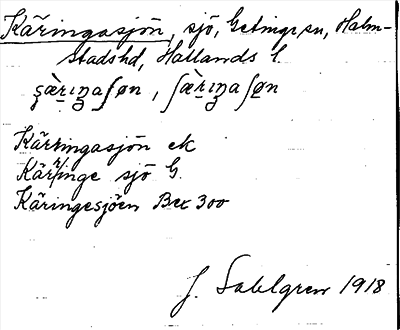 Käringasjön, sjö, Getinge sn, Halm-
stads hd, Hallands l.
Käringasjön ek
Kärringe sjö G.
Käringesjöen Bex 300
J. Sahlgren 1918